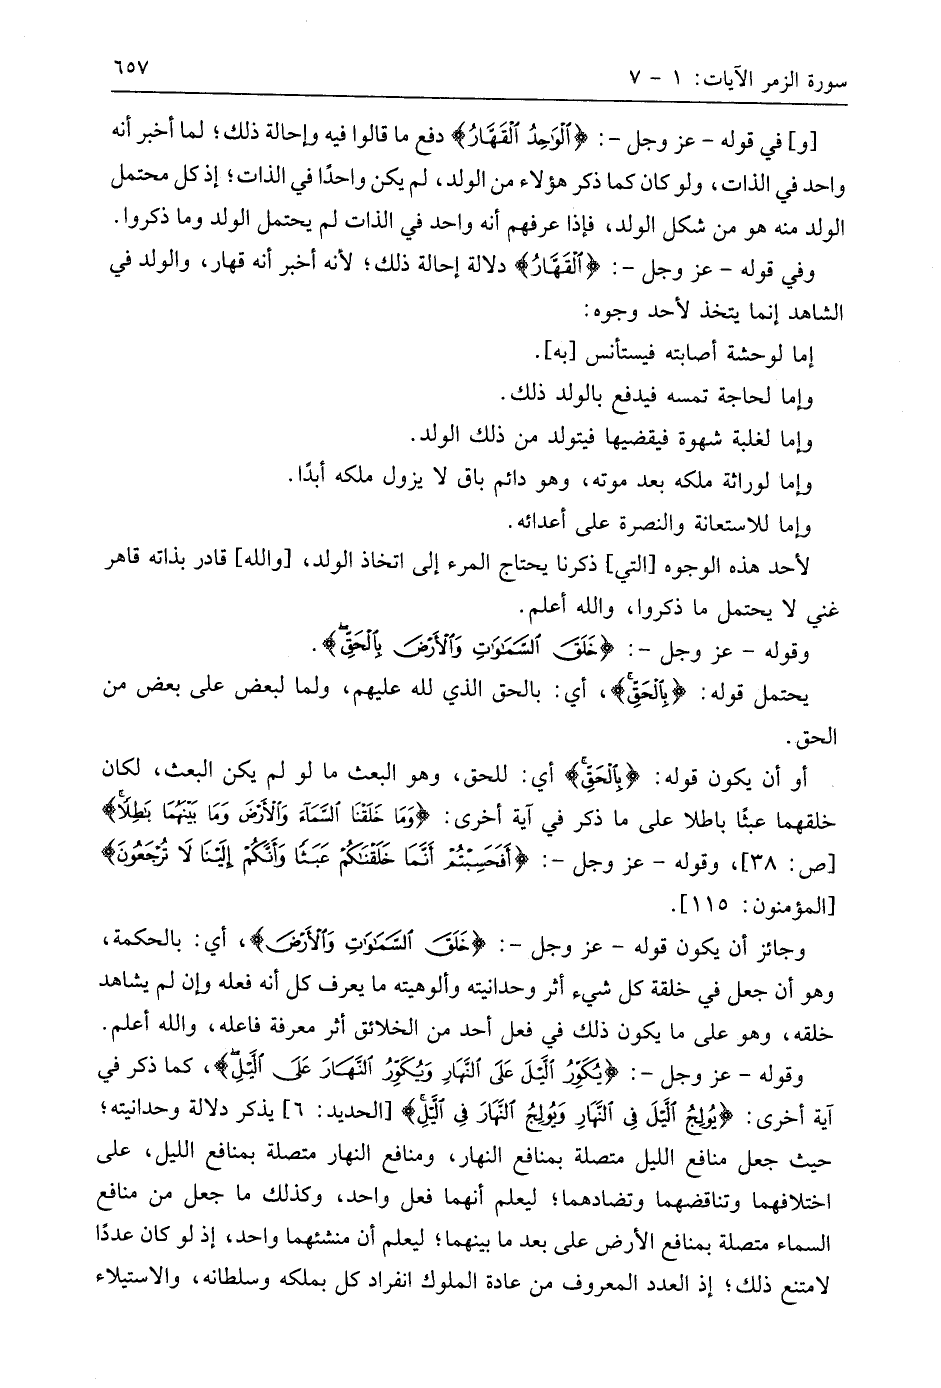 سورة الزمر الآيات: ١ - ٧
٦٥٧
[و] في قوله - عز وجل -: ﴿ٱلْوَٰحِدُ ٱلْقَهَّارُ﴾ دفع ما قالوا فيه وإحالة ذلك؛ لما أخبر أنه
واحد في الذات، ولو كان كما ذكر هؤلاء من الولد، لم يكن واحدًا في الذات؛ إذ كل محتمل
الولد منه هو من شكل الولد، فإذا عرفهم أنه واحد في الذات لم يحتمل الولد وما ذكروا.
وفي قوله - عز وجل -: ﴿ٱلْقَهَّارُ﴾ دلالة إحالة ذلك؛ لأنه أخبر أنه قهار، والولد في
الشاهد إنما يتخذ لأحد وجوه:
إما لوحشة أصابته فيستأنس [به].
وإما لحاجة تمسه فيدفع بالولد ذلك.
وإما لغلبة شهوة فيقضيها فيتولد من ذلك الولد.
وإما لوراثة ملكه بعد موته، وهو دائم باق لا يزول ملكه أبدًا.
وإما للاستعانة والنصرة على أعدائه.
لأحد هذه الوجوه [التي] ذكرنا يحتاج المرء إلى اتخاذ الولد، [والله] قادر بذاته قاهر
غني لا يحتمل ما ذكروا، والله أعلم.
وقوله - عز وجل -: ﴿خَلَقَ ٱلسَّمَٰوَٰتِ وَٱلْأَرْضَ بِٱلْحَقِّۖ﴾.
يحتمل قوله: ﴿بِٱلْحَقِّۚ﴾، أي: بالحق الذي لله عليهم، ولما لبعض على بعض من
الحق.
أو أن يكون قوله: ﴿بِٱلْحَقِّۚ﴾ أي: للحق، وهو البعث ما لو لم يكن البعث، لكان
خلقهما عبثًا باطلا على ما ذكر في آية أخرى: ﴿وَمَا خَلَقْنَا ٱلسَّمَآءَ وَٱلْأَرْضَ وَمَا بَيْنَهُمَا بَٰطِلًاۚ﴾
[ص: ٣٨]، وقوله - عز وجل -: ﴿أَفَحَسِبْتُمْ أَنَّمَا خَلَقْنَٰكُمْ عَبَثًا وَأَنَّكُمْ إِلَيْنَا لَا تُرْجَعُونَ﴾
[المؤمنون: ١١٥].
وجائز أن يكون قوله - عز وجل -: ﴿خَلَقَ ٱلسَّمَٰوَٰتِ وَٱلْأَرْضَ﴾، أي: بالحكمة،
وهو أن جعل في خلقة كل شيء أثر وحدانيته وألوهيته ما يعرف كل أنه فعله وإن لم يشاهد
خلقه، وهو على ما يكون ذلك في فعل أحد من الخلائق أثر معرفة فاعله، والله أعلم.
وقوله - عز وجل -: ﴿يُكَوِّرُ ٱلَّيْلَ عَلَى ٱلنَّهَارِ وَيُكَوِّرُ ٱلنَّهَارَ عَلَى ٱلَّيْلِۖ﴾، كما ذكر في
آية أخرى: ﴿يُولِجُ ٱلَّيْلَ فِى ٱلنَّهَارِ وَيُولِجُ ٱلنَّهَارَ فِى ٱلَّيْلِۚ﴾ [الحديد: ٦] يذكر دلالة وحدانيته؛
حيث جعل منافع الليل متصلة بمنافع النهار، ومنافع النهار متصلة بمنافع الليل، على
اختلافهما وتناقضهما وتضادهما؛ ليعلم أنهما فعل واحد، وكذلك ما جعل من منافع
السماء متصلة بمنافع الأرض على بعد ما بينهما؛ ليعلم أن منشئهما واحد، إذ لو كان عددًا
لامتنع ذلك؛ إذ العدد المعروف من عادة الملوك انفراد كل بملكه وسلطانه، والاستيلاء